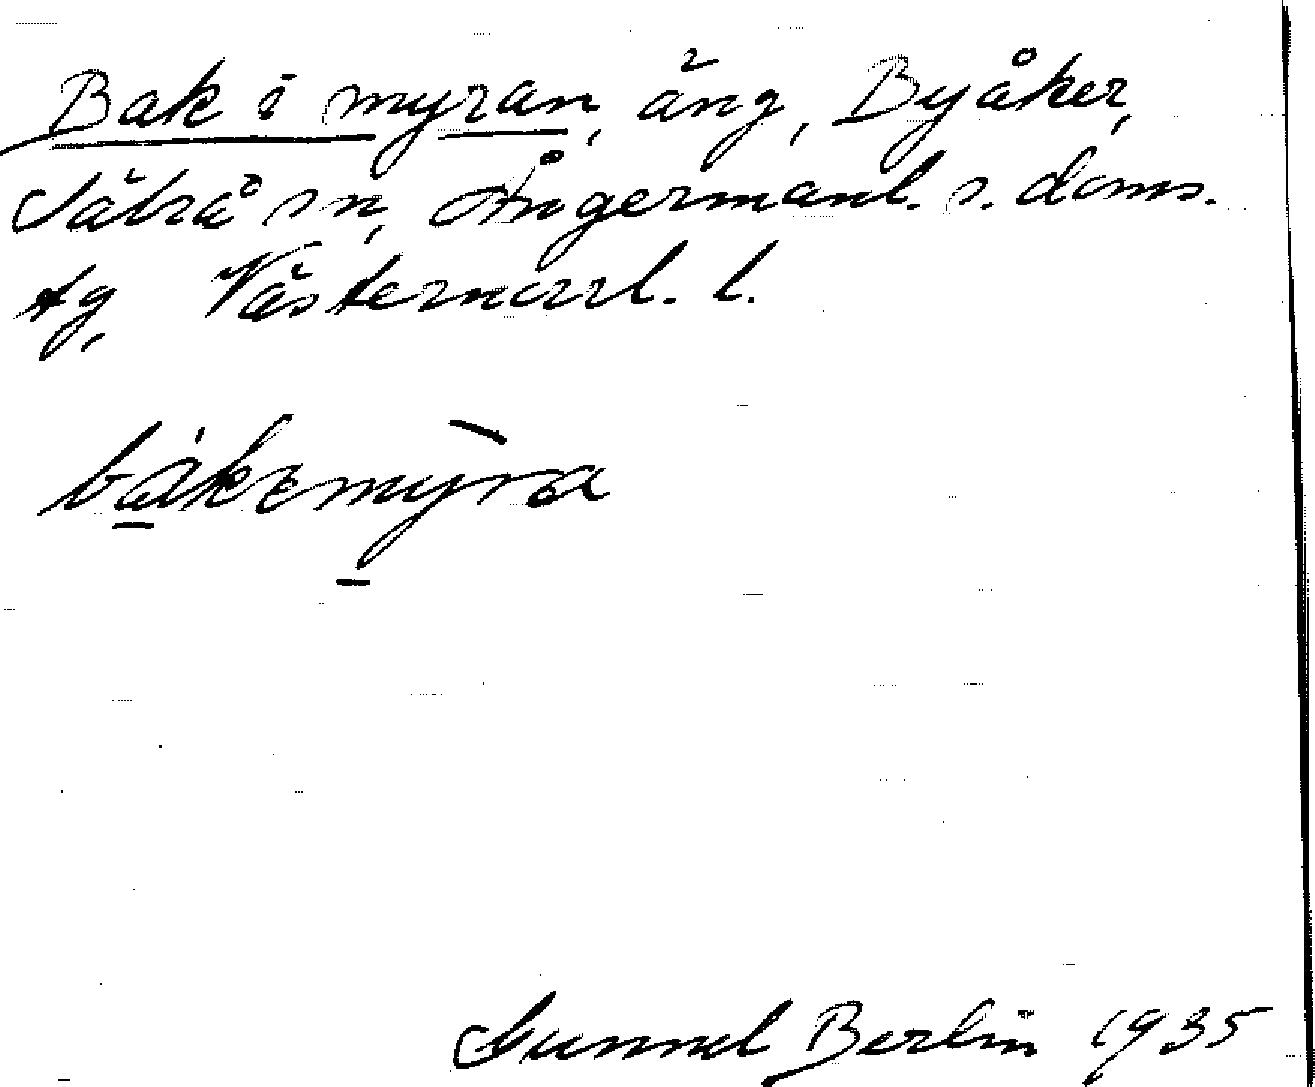 Bak i myran, äng, Byåker,
Säbrå sn, Ångermanl. s. doms.
tg, Västernorrl. l.
Gunnel Berlin 1935